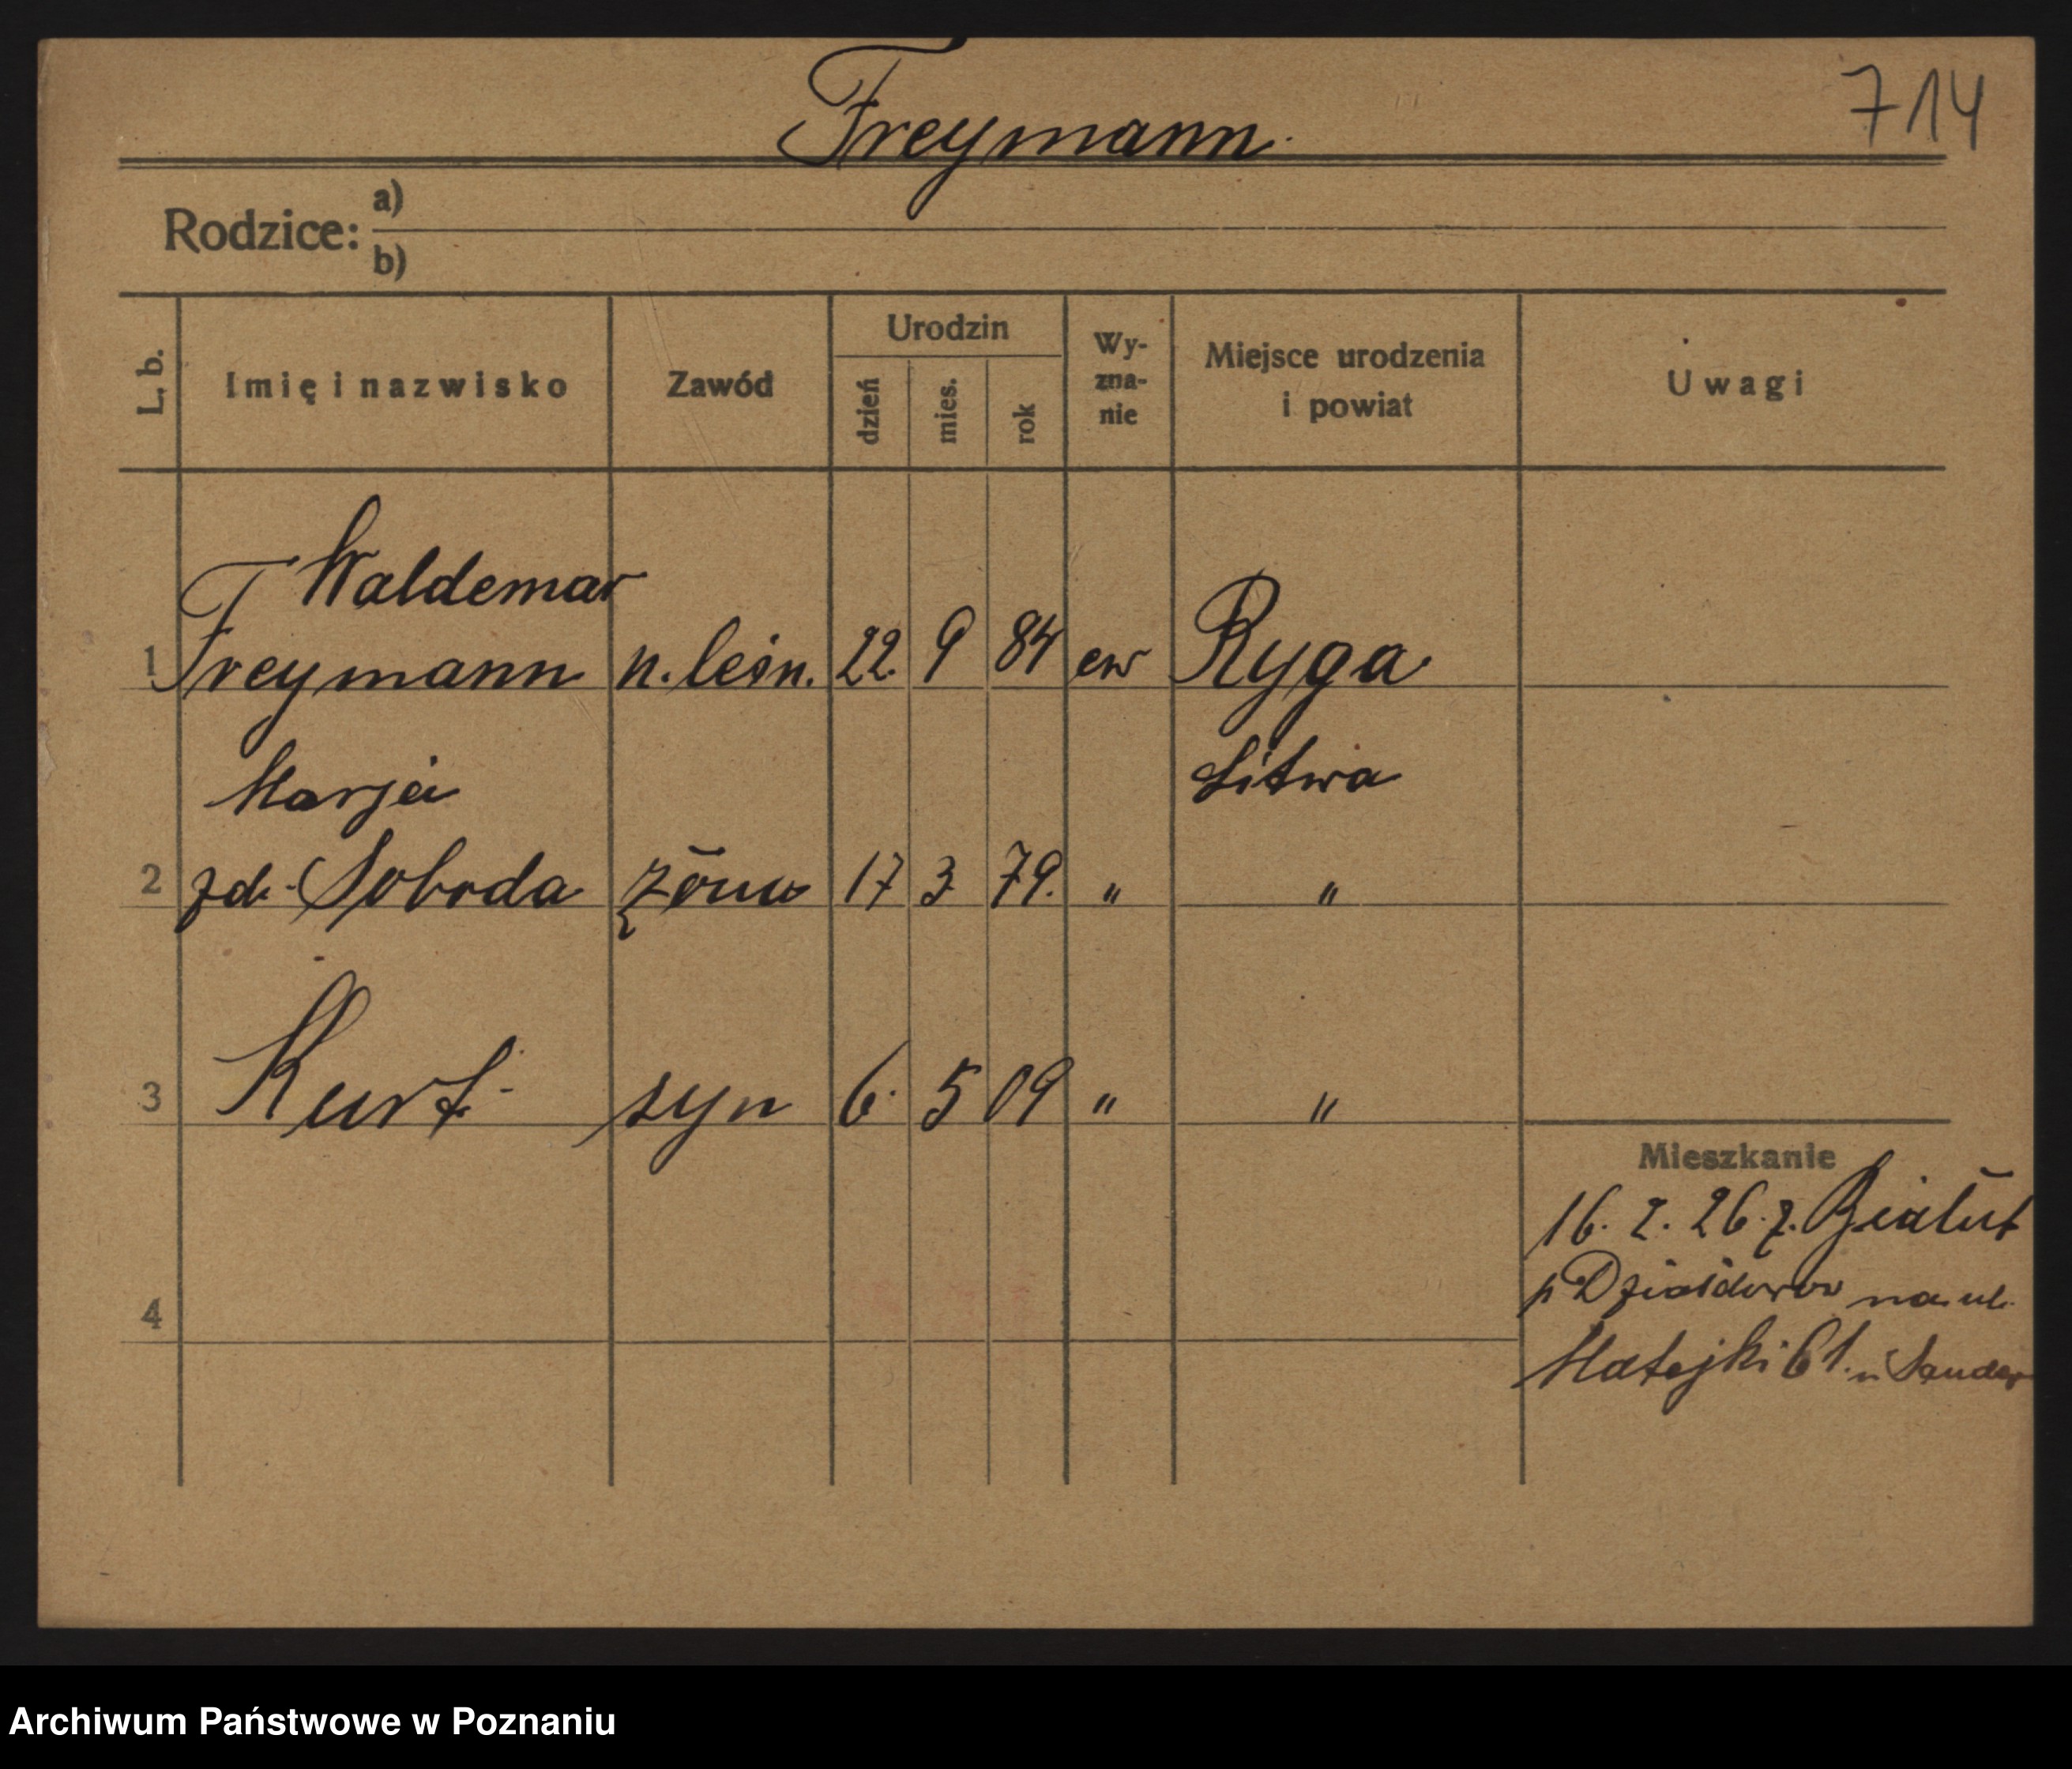 Freymann.
714
Rodzice: a)
b)
L. b. Imię i nazwisko Zawód Urodzin dzień mies. rok Wy-zna-nie Miejsce urodzenia i powiat Uwagi
Waldemar
1 Freymann n. leśn. 22. 9 84 ew Ryga
Marja Litwa
2 zd. Soboda żona 17 3 79. " "
3 Kurt syn 6. 5 09 " "
Mieszkanie
16. 2. 26. z. Białut
p Działdowo na ul.
4
Matejki 61. u Sander
Archiwum Państwowe w Poznaniu